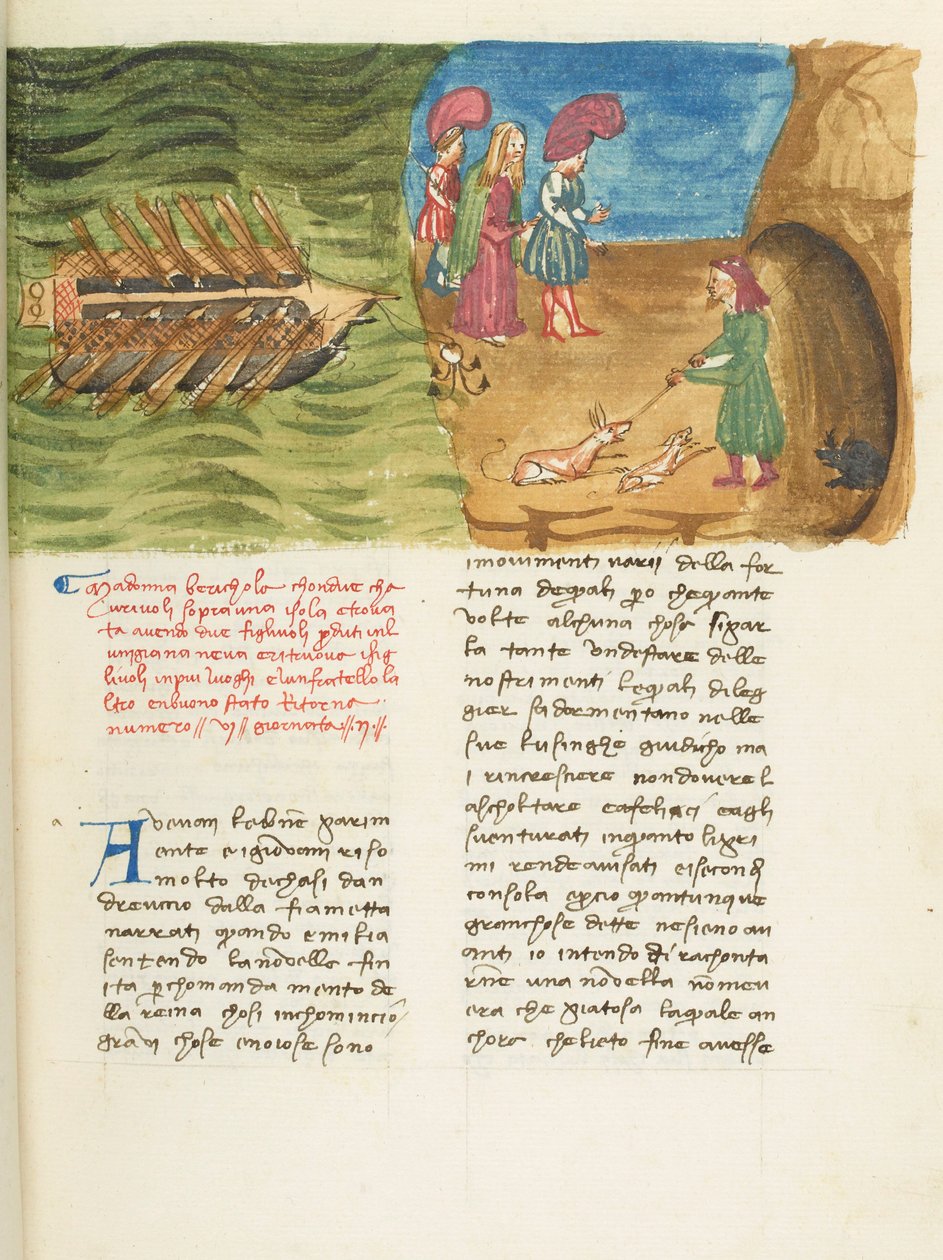 Madonna berichola chondue cha
vrivoli sopra una isola etrova
ta avendo due figluoli pduti inl
unigiana neva eritruova ifig
livoli in piu luoghi elunfratello la
ltro enbuono stato Ritorna
numero // vj // giornata // .ij. //
a
Avevan ledonne parim
ente eigiovani riso
molto dechasi dan
dreuccio dalla fiametta
narrati quando emilia
sentendo lanovella fin
ita p chomandamento de
lla reina chosi inchomincio
gravi chose enoiose sono
imovimenti varii della for
tuna dequali po chequante
volte alchuna chosa sipar
la tante undestare delle
nostrimenti lequali dileg
gier sadormentano nelle
sue lusinghe giudicho ma
i rincresciere nondovere l
ascholtare eafelici eagli
sventurati inquanto lipri
mi rendeavisati eisecondi
consola epcio quantunque
granchose dette nesieno av
anti io intendo di rachonta
rne una novella nomen v
era che piatosa laquale an
chora chelieto fine avesse